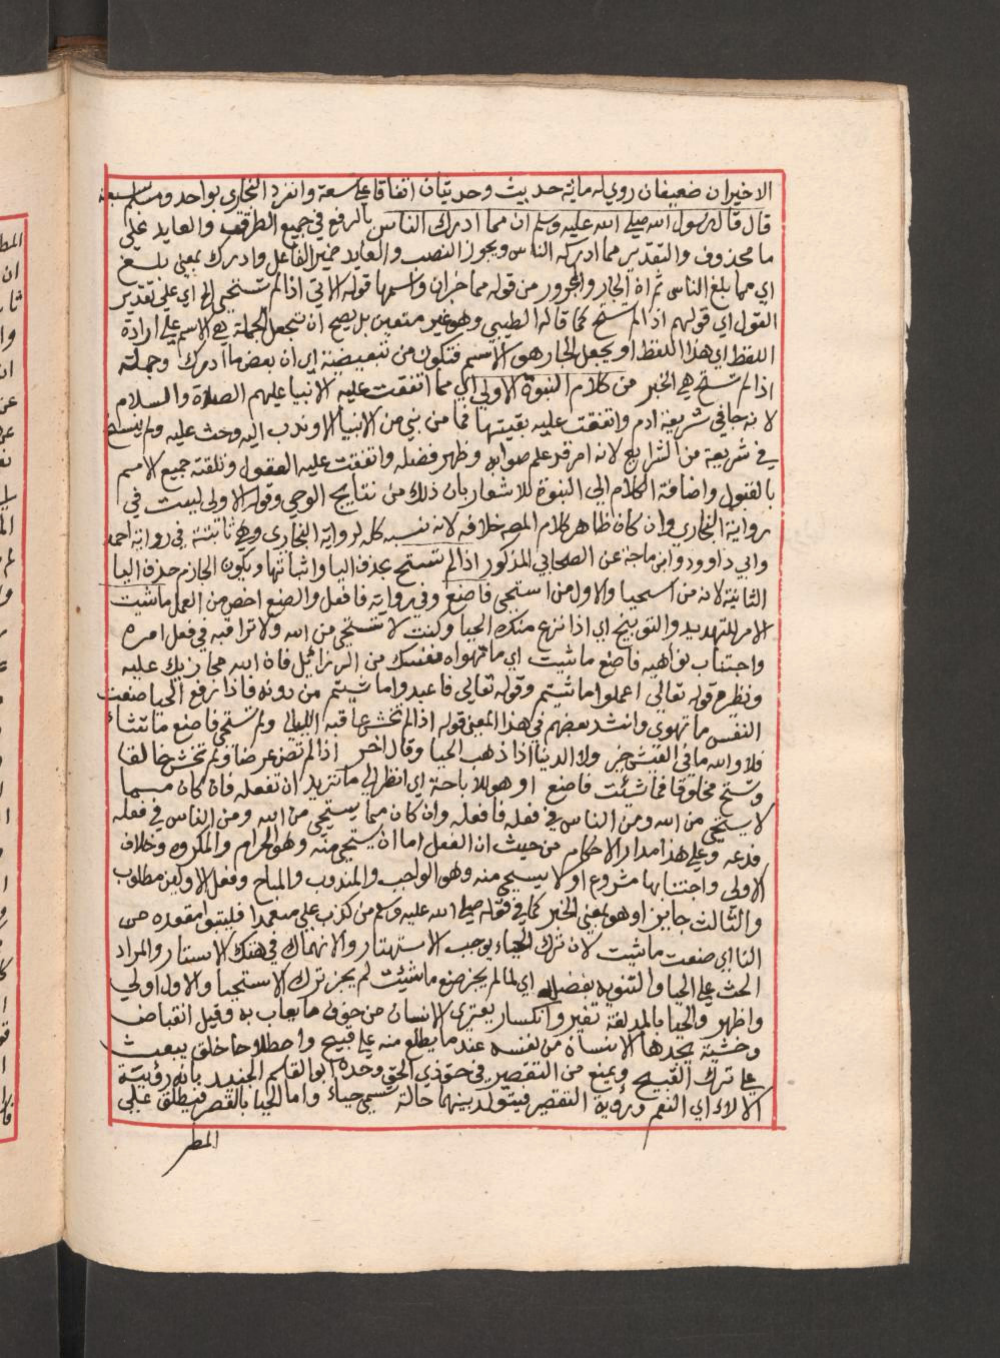 الاخيران ضعيفان روي له مائة حديث وحديثان اتفقا على تسعة وانفرد البخاري بواحد ومسلم بسبعة
قال قال رسول الله صلي الله عليه وسلم ان مما ادرك الناس بالرفع في جميع الطرق والعايد على
ما محذوف والتقدير مما ادركه الناس ويجوز النصب والعايد ضمير الفاعل وادرك بمعني بلغ
اي مما بلغ الناس ثم ان الجار والمجرور من قوله مما خبر ان واسمها قوله الاتي اذا لم تستحي الخ اي علي تقدير
القول اي قولهم اذا لم تستح كما قاله الطيبي وهو غير متعين بل يصح ان تجعل الجملة هي الاسم علي ارادة
اللفظ اي هذا اللفظ او يجعل الجار هو الاسم فتكون من تبعيضية اي ان بعض ما ادرك وجملة
اذا لم تستح هي الخبر من كلام النبوة الاولي اي مما اتفقت عليه الانبيا عليهم الصلاة والسلام
لانه جا في شريعة ادم واتفقت عليه بقيتها فما من نبي من الانبيا الا وندب اليه وحث عليه ولم ينسخ
في شريعة من الشرايع لانه امر قد علم صوابه وظهر فضله واتفقت عليه العقول وتلقته جميع الامم
بالقبول واضافة الكلام الي النبوة للاشعار بان ذلك من نتايج الوحي وقوله الاولي ليست في
رواية البخاري وان كان ظاهر كلام المصه خلافه لانه نسبه كله لرواية البخاري وهي ثابتة في رواية احمد
وابي داوود وابن ماجة عن الصحابي المذكور اذا لم تستح بحذف اليا واثباتها ويكون الجازم حذف اليا
الثانية لانه من استحيا والاول من استحي فاصنع وفي رواية فافعل والصنع اخص من العمل ما شيت
الامر للتهديد والتوبيخ اي اذا نزع منك الحيا وكنت لا تستحي من الله ولا تراقبه في فعل امره
واجتناب نواهيه فاصنع ما شيت اي ما تهواه نفسك من الرزائل فان الله مجازيك عليه
ونظيره قوله تعالي اعملوا ما شيتم وقوله تعالي فاعبدوا ما شيتم من دونه فاذا رفع الحيا صنعت
النفس ما تهوي وانشد بعضهم في هذا المعني قوله اذا لم تخش عاقبة الليالي ولم تستحي فاصنع ما تشاء
فلا والله ما في العيش خير ولا الدنيا اذا ذهب الحيا وقال اخر اذا لم تصن عرضا ولم تخش خالقا
وتستح مخلوقا فما شئت فاصنع او هو للاباحة اي انظر الي ما تريد ان تفعله فان كان مما
لا يستحي من الله ومن الناس في فعله فافعله وان كان مما يستحي من الله ومن الناس في فعله
فدعه وعلي هذا مدار الاحكام من حيث ان الفعل اما ان يستحي منه وهو الحرام والمكروه وخلاف
الاولي واجتنابها مشروع او لا يستحي منه وهو الواجب والمندوب والمباح وفعل الاولين مطلوب
والثالث جايز او هو بمعني الخبر كما في قوله صلي الله عليه وسلم من كذب علي متعمدا فليتبوا مقعده من
النار اي صنعت ما شيت لان ترك الحياء يوجب الاستهتار والانهماك في هتك الاستار والمراد
الحث علي الحيا والتنويه بفضله اي لما لم يجز صنع ما شئت لم يجز ترك الاستحيا والاول اولي
واظهر والحيا بالمد لغة تغير وانكسار يعتري الانسان من خوف ما يعاب به وقيل انقباض
وخشية يجدها الانسان من نفسه عند ما يطلع منه علي قبيح واصطلاحا خلق يبعث
علي ترك القبيح ويمنع من التقصير في حق ذي الحق وحده ابو القاسم الجنيد بانه رؤية
الالاء اي النعم ورؤية التقصير فيتولد بينهما حالة تسمي حياء واما الحيا بالقصر فيطلق علي
المطر